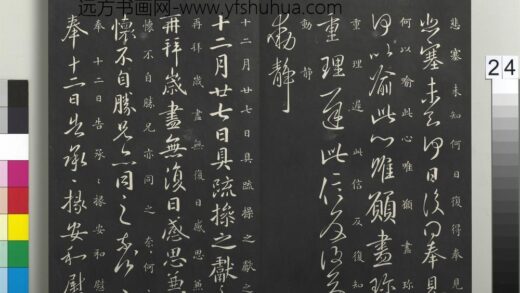 远方书画网-www.yfshuhua.com
悲塞未知何日復得奉見
悲塞未知何日復得奉見
何以喻此心唯願盡珍
何以喻此心唯願盡珍
重理遲此信反復知
重理遲此信反復
動靜
動靜
十二月廿七日具疏操之獻之
十二月廿七日具疏操之獻
再拜歲盡無復日感思無
再拜歲盡無復日感思無
懷不自勝兄亦同之奈何
懷不自勝兄亦同之奈何
奉十二日告承操安和慰
奉十二日告承操安和慰
24